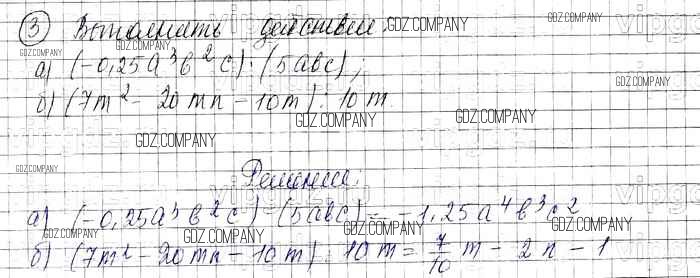 ③ Выполнить действия: GDZ.COMPANY vipgdz
GDZ.COMPANY GDZ.COMPANY
а) (-0,25a³b²c) · (5abc);
GDZ.COMPANY
б) (7m² - 20mn - 10m) : 10m
GDZ.COMPANY GDZ.COMPANY
GDZ.COMPANY
Решение:
GDZ.COMPANY
а) (-0,25a³b²c) · (5abc) = -1,25a⁴b³c²
GDZ.COMPANY GDZ.COMPANY GDZ.COMPANY GDZ.COMPANY
б) (7m² - 20mn - 10m) : 10m = 7/10 m - 2n - 1